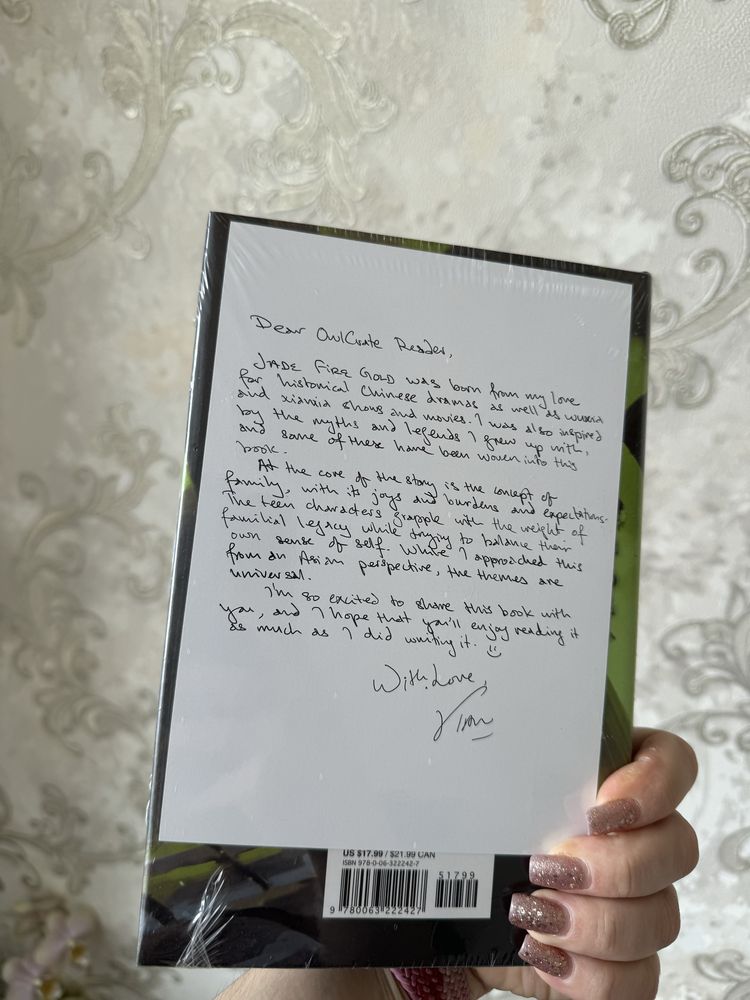 Dear OwlCrate Reader,
JADE FIRE GOLD was born from my love
for historical Chinese dramas as well as wuxia
and xianxia shows and movies. I was also inspired
by the myths and legends I grew up with,
and some of these have been woven into this
book.
At the core of the story is the concept of
family, with its joys and burdens and expectations.
The teen characters grapple with the weight of
familial legacy while trying to balance their
own sense of self. While I approached this
from an Asian perspective, the themes are
universal.
I'm so excited to share this book with
you, and I hope that you'll enjoy reading it
as much as I did writing it. :)
With Love,
US $17.99 / $21.99 CAN
ISBN 978-0-06-322242-7
51799
9 780063 222427